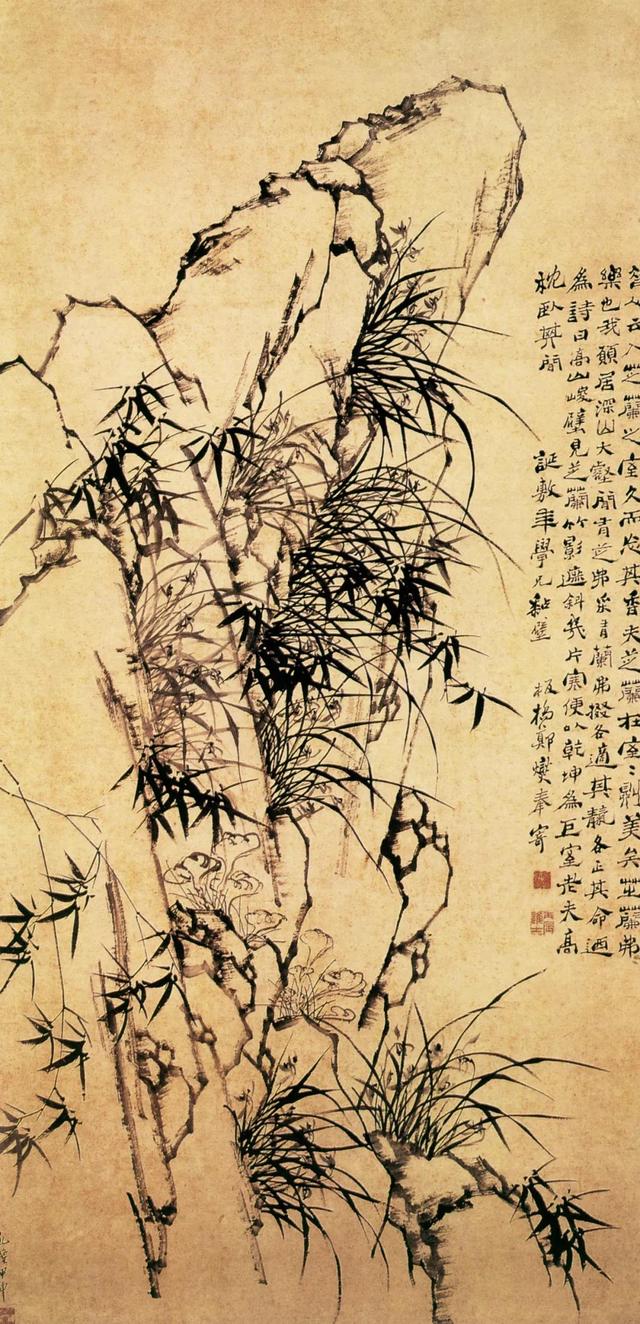 昔人云入芝蘭之室久而忘其香夫芝蘭在室〻則美矣芝蘭弗
樂也我願居深山大壑間有芝弗采有蘭弗掇各適其各正其命迺
為詩曰高山峻壁見芝蘭竹影遮斜幾片寒便以乾坤為巨室老夫高
枕臥其間
誕敷年學兄黏壁
板橋鄭燮奉寄